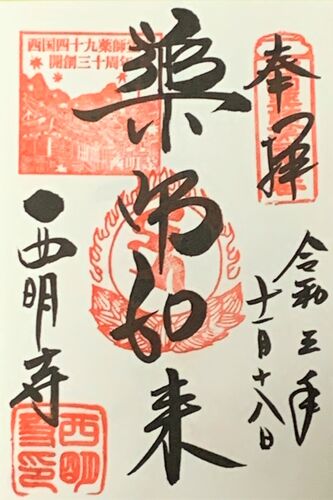 奉拝
令和三年
十一月十八日
薬師如来
西国四十九薬師
開創三十周年
西明寺
西明
寺印